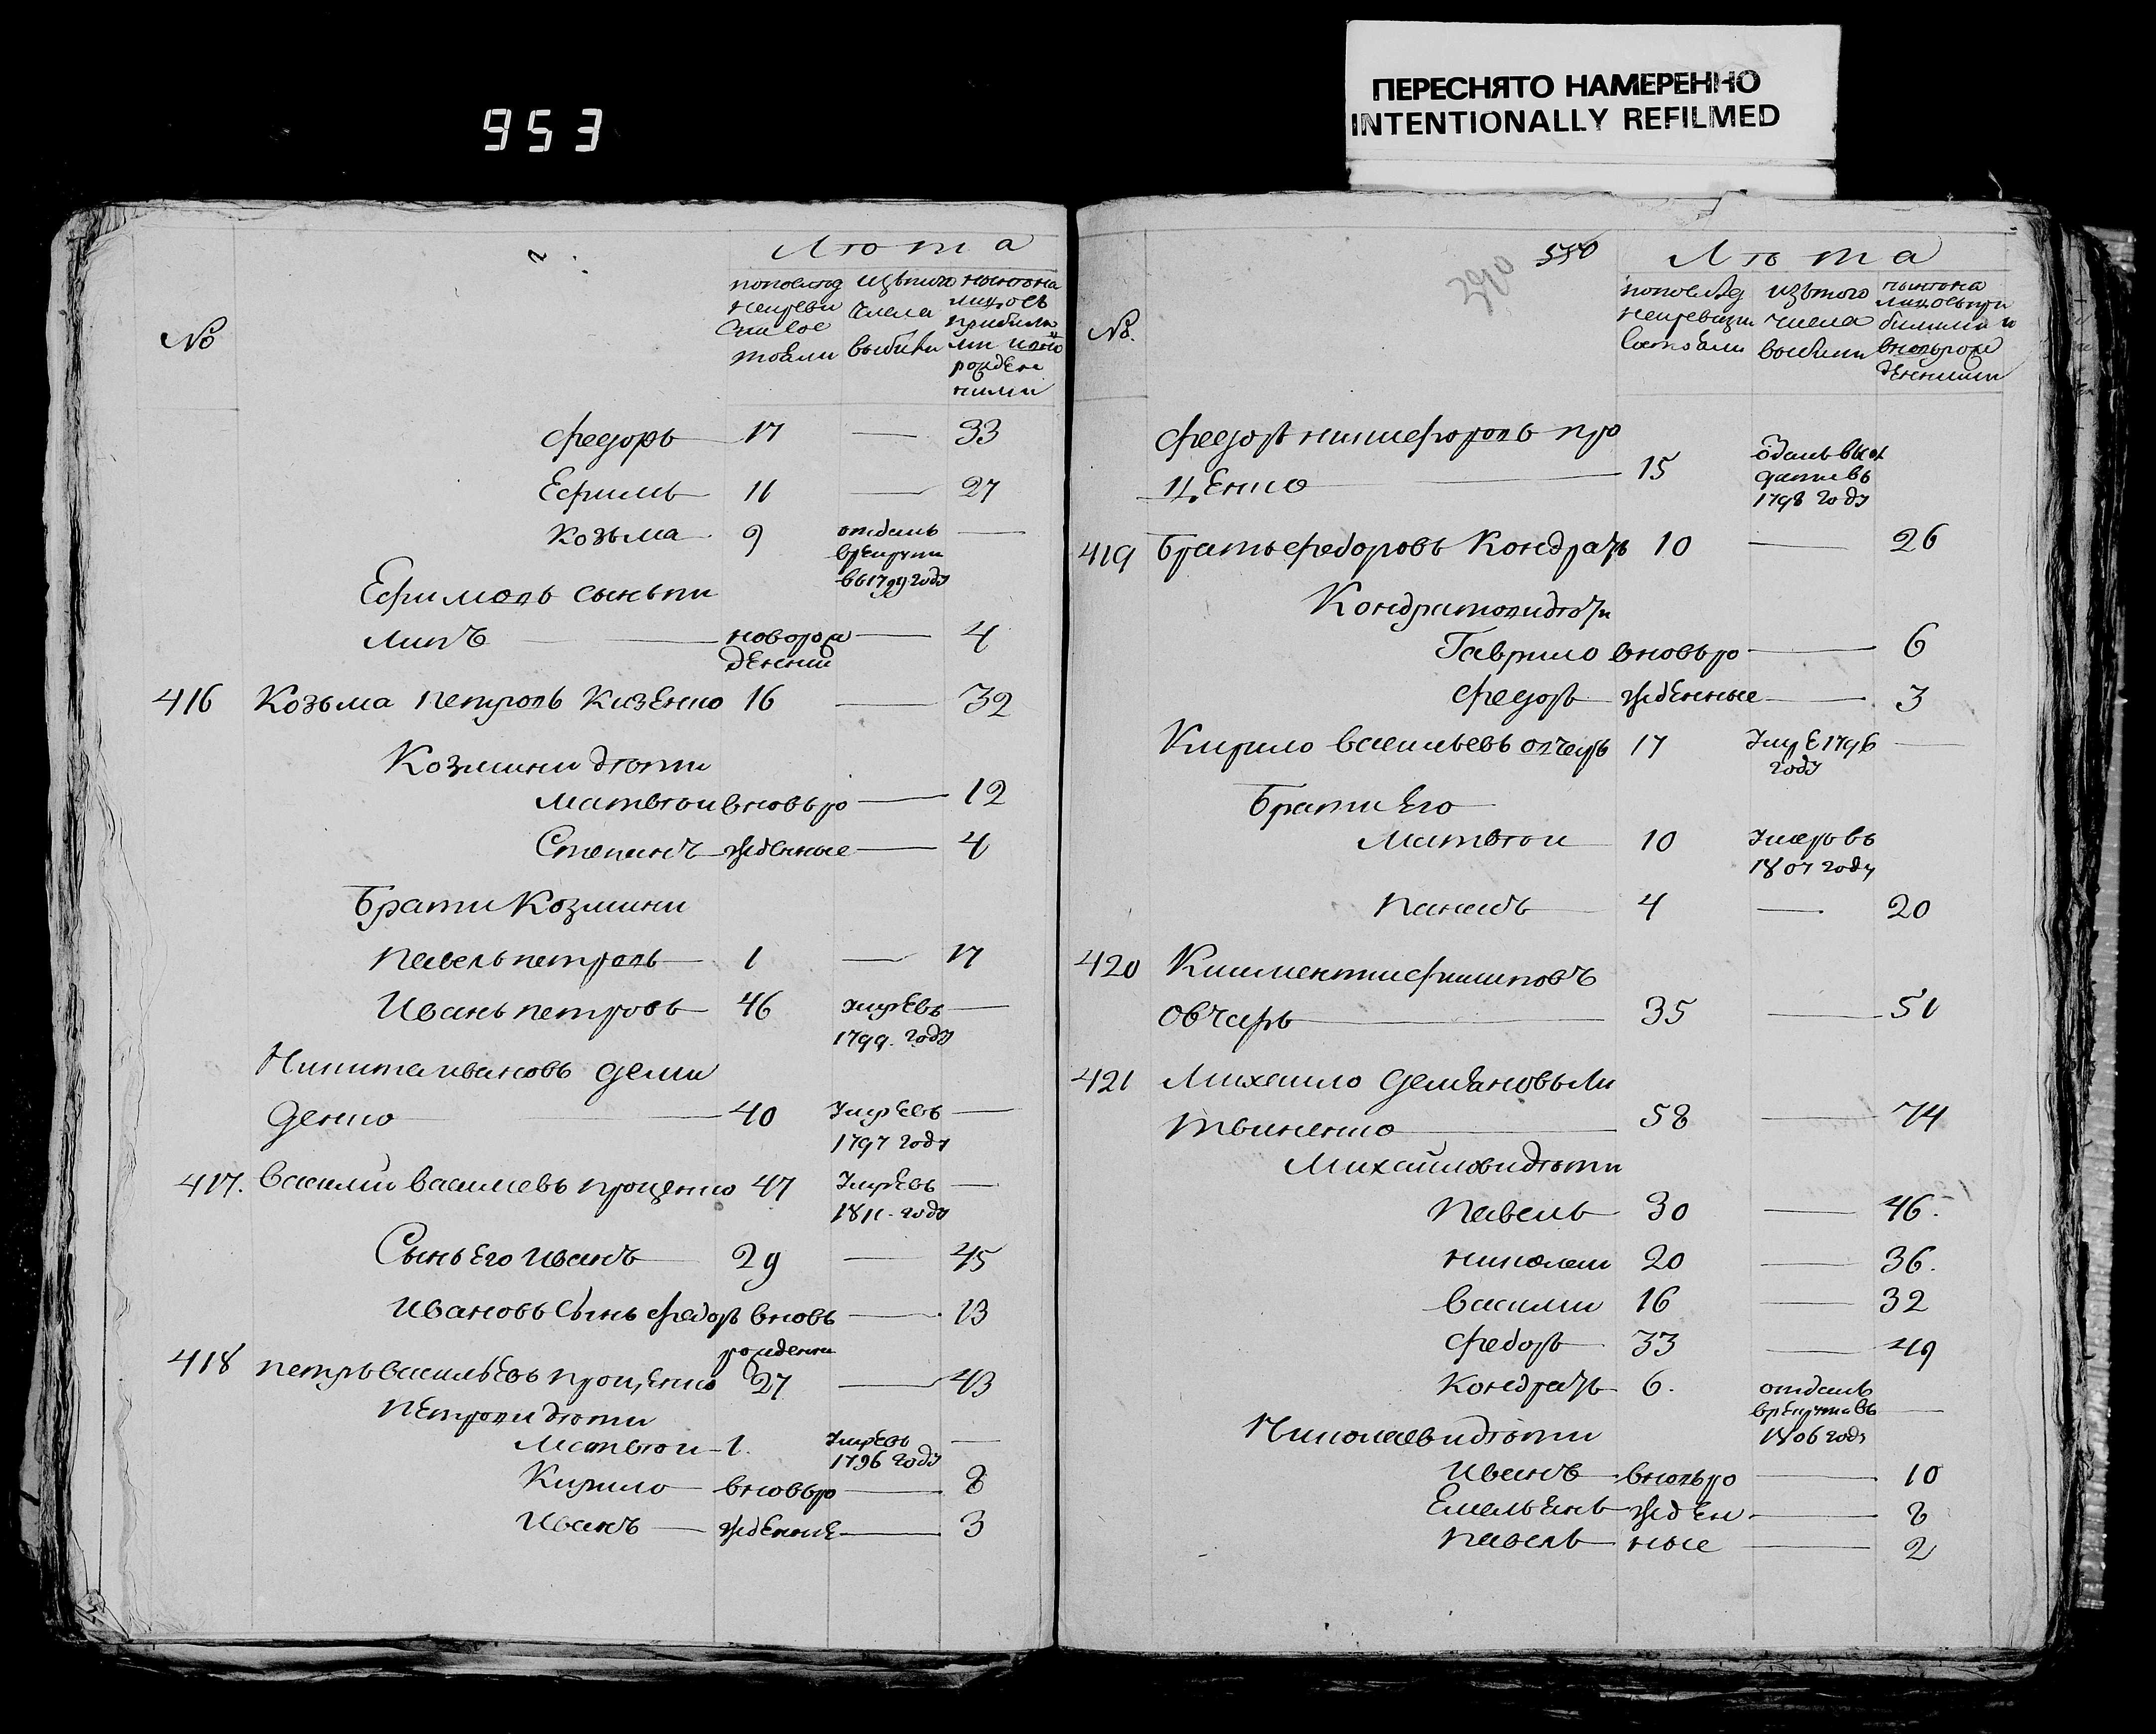 953
ПЕРЕСНЯТО НАМЕРЕННО
INTENTIONALLY REFILMED
Лѣта
№
по послед
ней реви
сии сос
тояли
из того
числа
выбыли
ныне на
лицо съ
прибылы
ми и вно
рожден
ными
Федоръ 17 — 33
Ефимъ 11 — 27
Козьма 9 отданъ —
врекруты
въ 1799 году
Ефимовъ сынъ Фи
липъ новорож — 4
денный
416 Козьма Петровъ Кизенко 16 — 32
Козмины дѣти
Матвѣй вновь ро — 12
Степанъ жденные — 4
Брати Козмины
Павелъ Петровъ 1 — 17
Иванъ Петровъ 46 Умре въ —
1799. году
Никита Ивановъ Деми
денко 40 Умре въ —
1797 году
417. Василий Васильевъ Проценко 47 Умре въ —
1811. году
Сынъ Его Иванъ 29 — 45
Ивановъ Сынъ Федоръ вновь — 13
рожденны
418 Петръ Васильевъ Проценко 27 — 43
Петровы дѣти
Матвѣй 1. Умре въ —
1796 году
Кирило вновь ро — 8
Иванъ жденные — 3
550
290
Лѣта
№.
по послед
ней ревизии
состояли
из того
числа
выбыли
ныне на
лицо съ при
былыми и
вновь рож
денными
Федоръ Никифоровъ Про
ценко 15
1798 году
419 Братъ Федоровъ Кондратъ 10 — 26
Кондратовы дѣти
Гаврило вновь ро — 6
Федоръ жденные — 3
Кирило Васильевъ Овчаръ 17 Умре 1796 —
году
Брати Его
Матвѣй 10 Умеръ въ
1807 году
Панасъ 4 — 20
420 Климентий Филиповъ
Овчаръ 35 — 51
421 Михайло Демяновъ Ли
твиненко 58 — 74
Михайловы дѣти
Павелъ 30 — 46.
Николай 20 — 36.
Василий 16 — 32
Федоръ 33 — 49
Кондратъ 6. отданъ
врекруты въ —
1806 году
Николаевы дѣти
Иванъ вновь ро — 10
Емельянъ жден — 8
Павелъ ные — 2